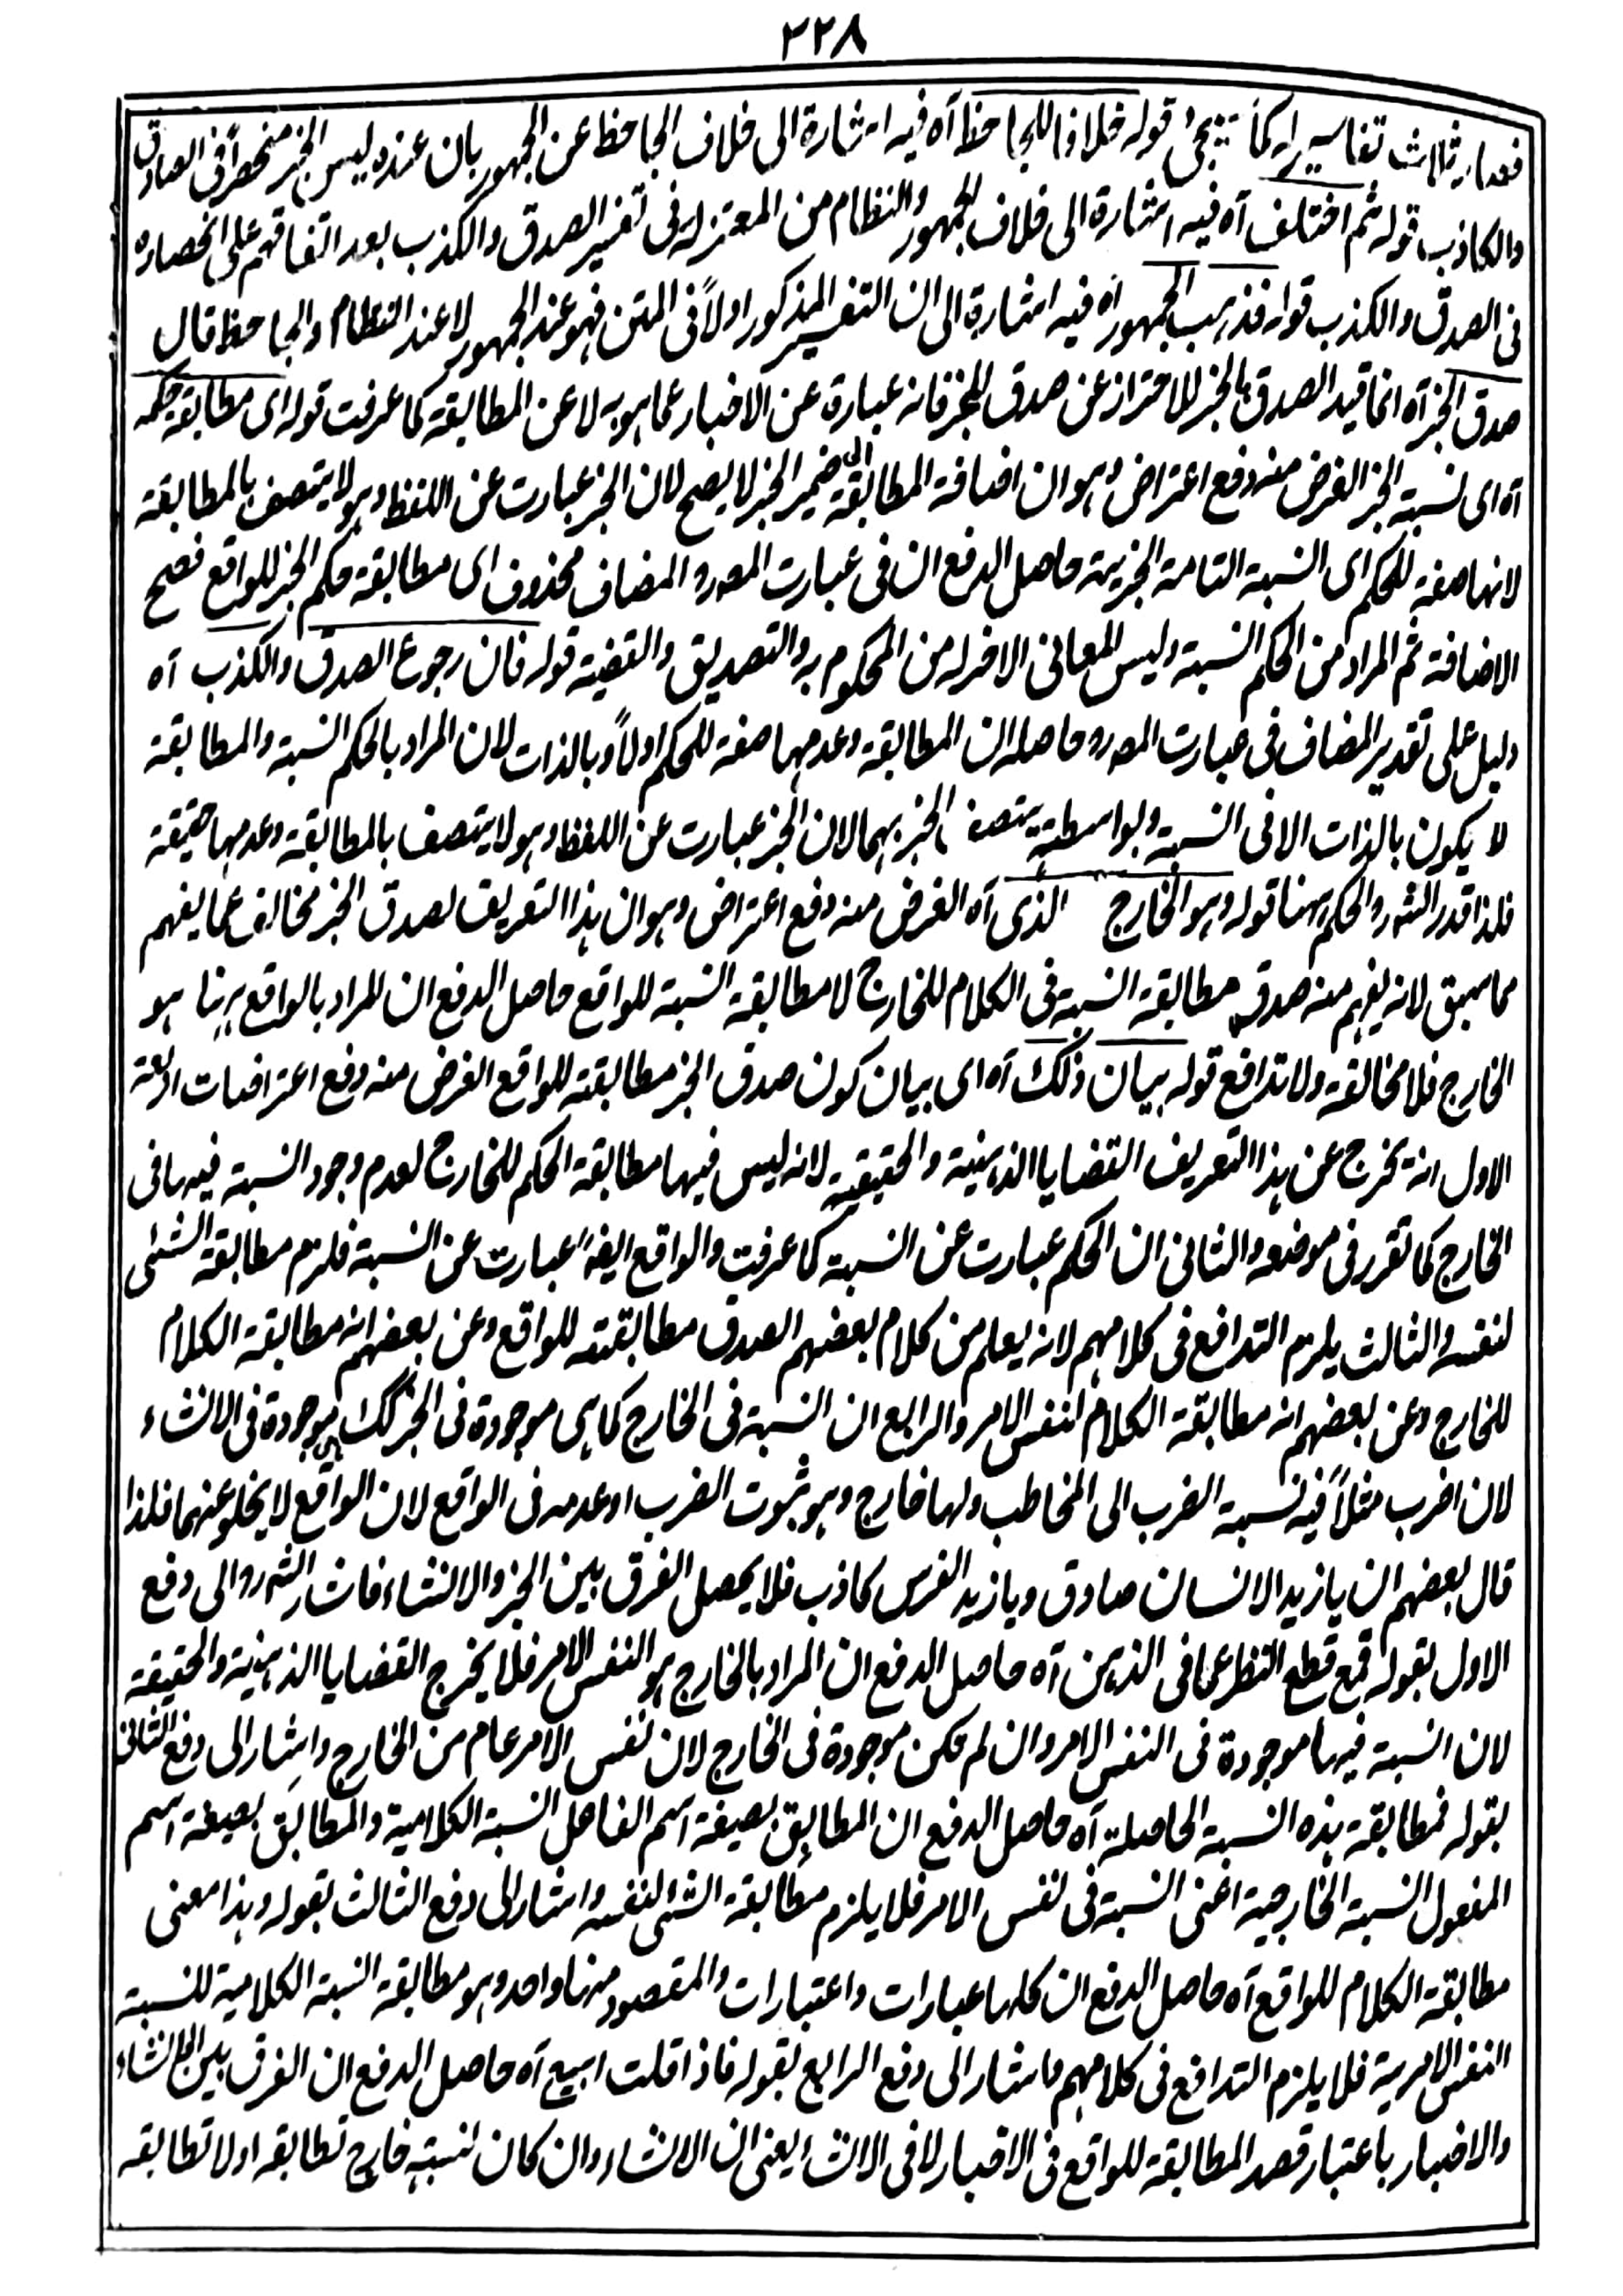 ٢٢٨
فصار ثلاث تفاسير له كما سيجئ قوله خلافا للجاحظ آه فيه اشارة الى خلاف الجاحظ عن الجمهور بان عنده ليس الخبر منحصراً فى الصادق
والكاذب قوله ثم اختلف آه فيه اشارة الى خلاف الجمهور والنظام من المعتزله فى تفسير الصدق والكذب بعد اتفاقهم على انحصاره
فى الصدق والكذب قوله فذهب الجمهور آه فيه اشارة الى ان التفسير المذكور اولاً فى المتن فهو عند الجمهور لا عند النظام والجاحظ قال
صدق الخبر آه انما قيد الصدق بالخبر للاحتراز عن صدق المخبر فانه عبارة عن الاخبار عما هو به لا عن المطابقة كما عرفت قوله اى مطابقة حكمه
آه اى نسبته الخبر الغرض منه دفع اعتراض وهو ان اضافة المطابقة الى ضمير الخبر لا يصح لان الخبر عبارت عن اللفظ وهو لا يتصف بالمطابقة
لانها صفة للحكم اى النسبة التامة الخبرية حاصل الدفع ان فى عبارت المصرو المضاف محذوف اى مطابقة حكم الخبر للواقع فصح
الاضافة ثم المراد من الحكم النسبة وليس المعانى الاخر له من المحكوم به والتصديق والقضية قوله فان رجوع الصدق والكذب آه
دليل على تقدير المضاف فى عبارت المصرو حاصله ان المطابقة وعدمها صفة للحكم اولاً وبالذات لان المراد بالحكم النسبة والمطابقة
لا يكون بالذات الا فى النسبة وبواسطته يتصف الخبر بهما لان الخبر عبارت عن اللفظ وهو لا يتصف بالمطابقة وعدمها حقيقة
فلذا قدر الشرو الحكم ههنا قوله وهو الخارج الذى آه الغرض منه دفع اعتراض وهو ان هذا التعريف لصدق الخبر مخالف عما يفهم
مما سبق لانه يفهم منه صدق مطابقة النسبة فى الكلام للخارج لا مطابقة النسبة للواقع حاصل الدفع ان المراد بالواقع ههنا هو
الخارج فلا مخالفة ولا تدافع قوله بيان ذلك آه اى بيان كون صدق الخبر مطابقته للواقع الغرض منه دفع اعتراضات اربعة
الاول انه يخرج عن هذا التعريف القضايا الذهنية والحقيقية لانه ليس فيها مطابقة الحكم للخارج لعدم وجود النسبة فيها فى
الخارج كما تقرر فى موضعه والثانى ان الحكم عبارت عن النسبة كما عرفت والواقع ايضاً عبارت عن النسبة فلزم مطابقة الشئى
لنفسه والثالث يلزم التدافع فى كلامهم لانه يعلم من كلام بعضهم الصدق مطابقته للواقع وعن بعضهم انه مطابقة الكلام
للخارج وعن بعضهم انه مطابقة الكلام لنفس الامر والرابع ان النسبة فى الخارج كما هى موجودة فى الخبر كك هى موجودة فى الانشاء
لان اضرب مثلاً فيه نسبة الضرب الى المخاطب ولها خارج وهو ثبوت الضرب او عدمه فى الواقع لان الواقع لا يخلو عنهما فلذا
قال بعضهم ان يا زيد الانسان صادق ويا زيد الفرس كاذب فلا يحصل الفرق بين الخبر والانشاء فاشار الشرو الى دفع
الاول بقوله فمع قطع النظر عما فى الذهن آه حاصل الدفع ان المراد بالخارج هو النفس الامر فلا يخرج القضايا الذهنية والحقيقة
لان النسبة فيها موجودة فى النفس الامر وان لم تكن موجودة فى الخارج لان نفس الامر عام من الخارج واشار الى دفع الثانى
بقوله فمطابقة هذه النسبة الحاصلة آه حاصل الدفع ان المطابِق بصيغة اسم الفاعل النسبة الكلامية والمطابَق بصيغة اسم
المفعول النسبة الخارجية اعنى النسبة فى نفس الامر فلا يلزم مطابقة الشئى لنفسه واشار الى دفع الثالث بقوله وهذا معنى
مطابقة الكلام للواقع آه حاصل الدفع ان كلها عبارات واعتبارات والمقصود منها واحد وهو مطابقة النسبة الكلامية للنسبة
النفس الامرية فلا يلزم التدافع فى كلامهم واشار الى دفع الرابع بقوله فاذا قلت ابيع آه حاصل الدفع ان الفرق بين الانشاء
والاخبار باعتبار قصد المطابقة للواقع فى الاخبار لا فى الانشاء يعنى ان الانشاء وان كان لنسبته خارج تطابقه او لا تطابقه